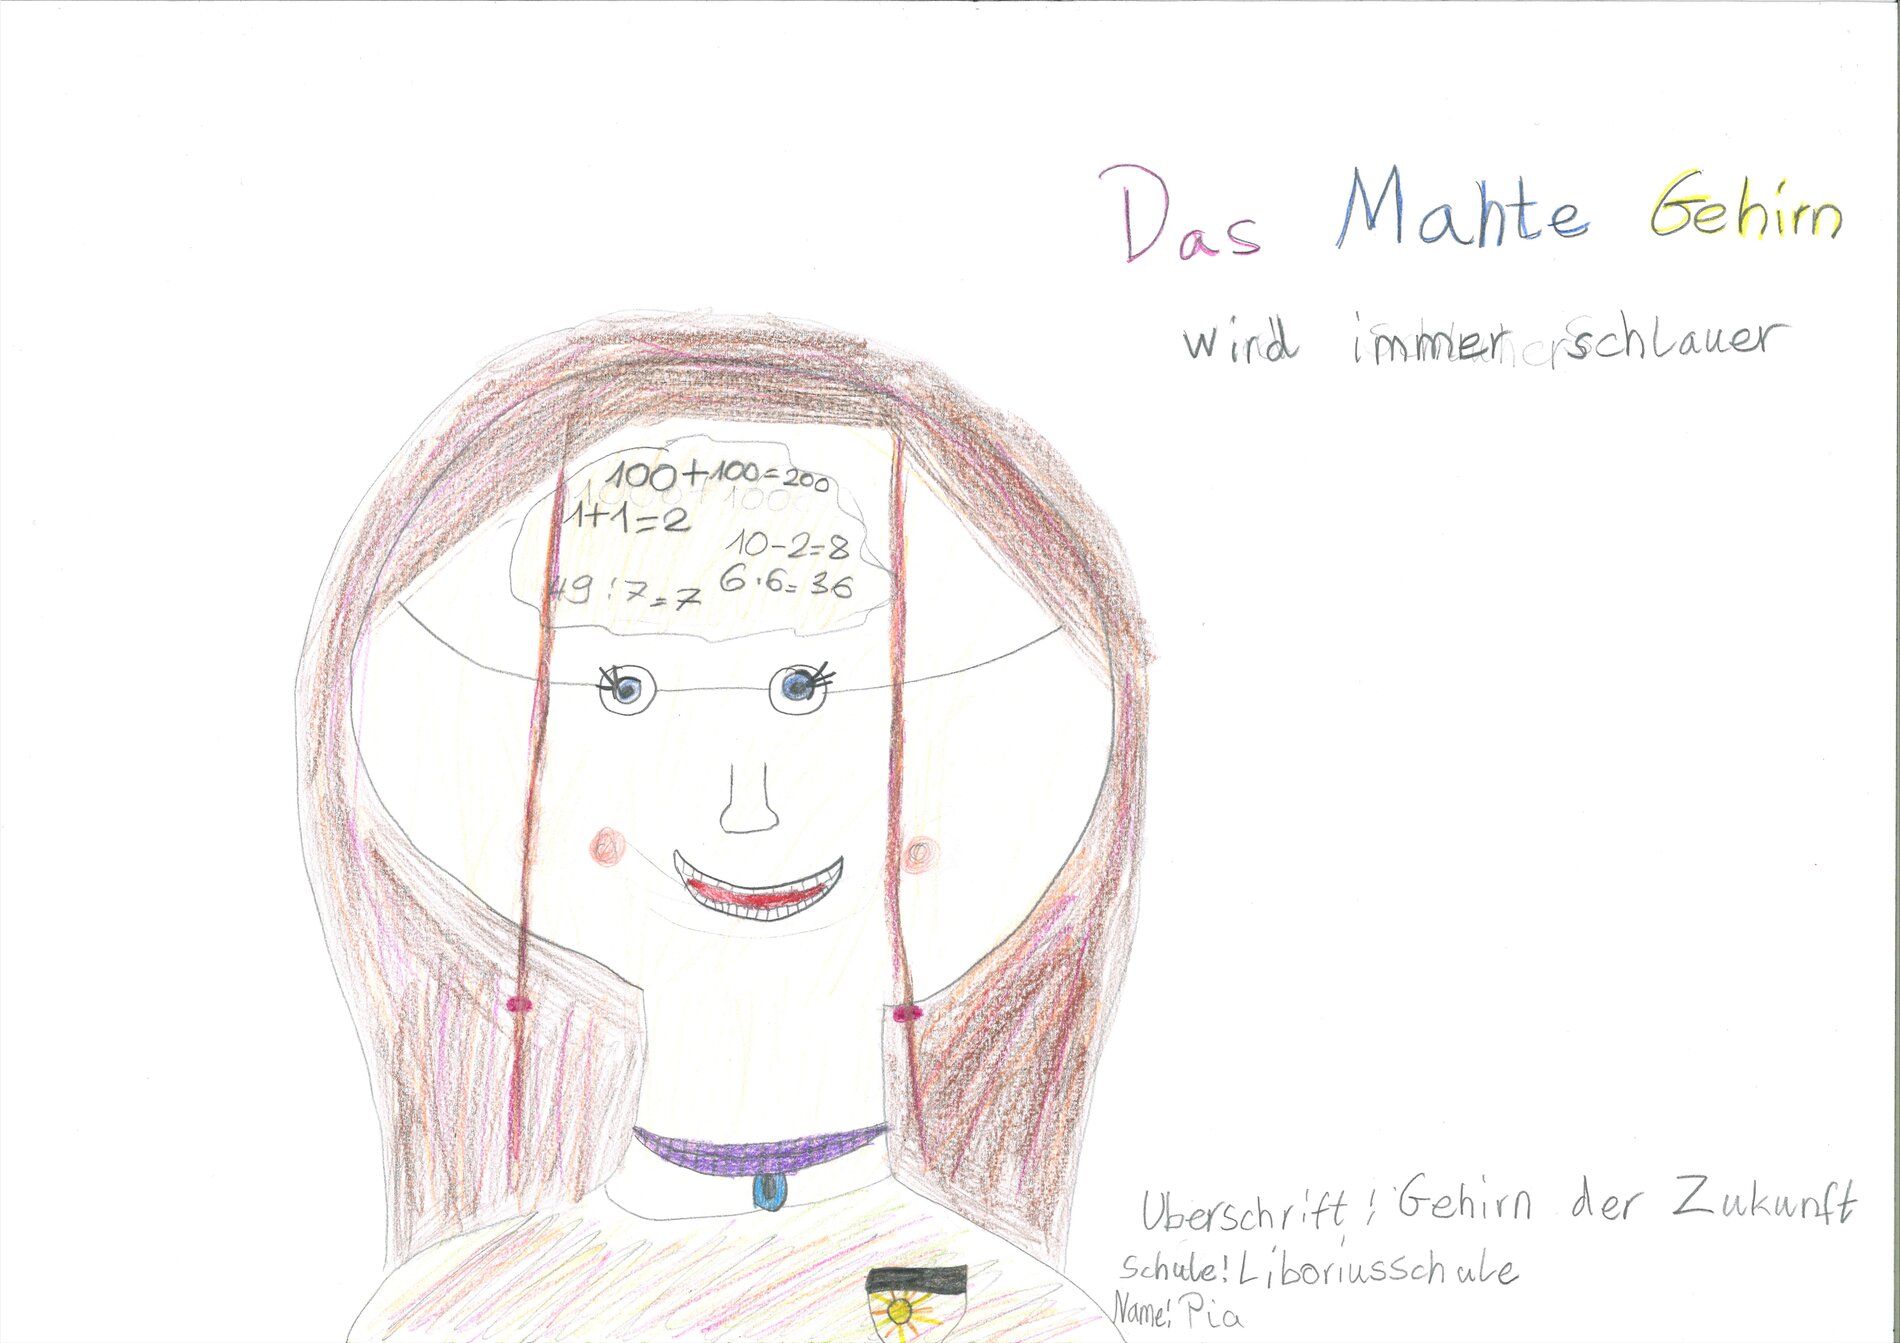 Das Mahte Gehirn
wird immer schlauer
100+100=200
1+1=2
10-2=8
49:7=7
6·6=36
Uberschrift! Gehirn der Zukunft
Schule! Liboriusschule
Name! Pia